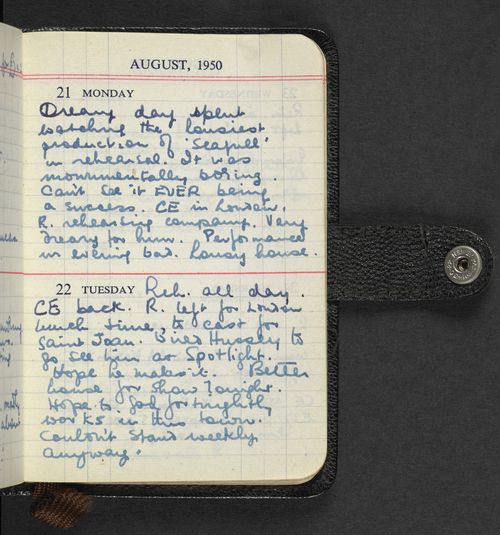 AUGUST, 1950
21 MONDAY
Dreary day spent
watching the lousiest
production of 'Seagull'
in rehearsal. It was
monumentally boring.
Can't see it EVER being
a success. CE in London.
R. rehearsing company. Very
dreary for him. Performance
in evening bad. Lousy house.
22 TUESDAY Reh. all day.
CE back. R. left for London
lunch time, to cast for
Saint Joan. Wired Hussey to
go see him at Spotlight.
Hope he makes it. Better
house for show tonight.
Hope to God fortnightly
works in this town.
Couldn't stand weekly
anyway.